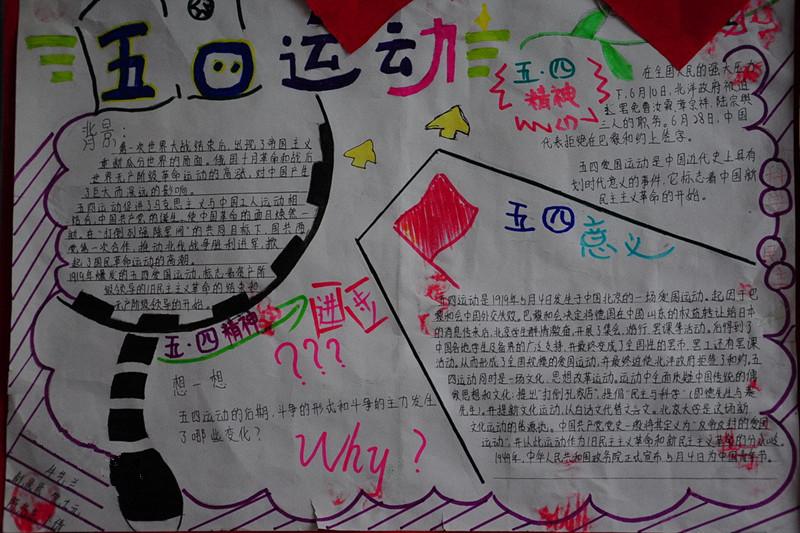 五四运动
背景:
第一次世界大战结束后,出现了帝国主义
重新瓜分世界的局面。俄国十月革命和战后
世界无产阶级革命运动的高涨,对中国产生
了巨大而深远的影响。
五四运动促进了马克思主义与中国工人运动相
结合,中国共产党的诞生,使中国革命的面目焕然一
新。在“打倒列强除军阀”的共同目标下,国共两
党第一次合作,推动北伐战争胜利进军,掀
起了国民革命运动的高潮。
1919年爆发的五四爱国运动,标志着资产阶
级领导的旧民主主义革命的结束和
无产阶级领导的开始。
五·四精神
五·四
精神
在全国人民的强大压力
下,6月10日,北洋政府被迫
罢免曹汝霖,章宗祥,陆宗舆
三人的职务。6月28日,中国
代表拒绝在巴黎和约上签字。
五四爱国运动是中国近代史上具有
划时代意义的事件,它标志着中国新
民主主义革命的开始。
五四意义
五四运动是1919年5月4日发生于中国北京的一场爱国运动。起因于巴
黎和会中国外交失败,巴黎和会决定将德国在中国山东的权益转让给日本
的消息传来后,北京学生群情激奋,开展了集会,游行,罢课等活动。后得到了
中国各地学生及各界的广泛支持,并最终变成了全国性的罢市,罢工还有罢课
活动。从而形成了全国规模的爱国运动,并最终迫使北洋政府拒签了和约。五
四运动同时是一场文化,思想改革运动。运动中全面质疑中国传统的儒
家思想和文化;推出“打倒孔家店”,提倡“民主与科学”(即德先生与赛
先生)。并提新文化运动,以白话文代替文言文。北京大学是这场新
文化运动的策源地。中国共产党党史一般将其定义为“反帝反封的爱国
运动”,并以此运动作为旧民主主义革命和新民主主义革命的分水岭。
1949年,中华人民共和国政务院正式宣布5月4日为中国青年节。
???
想一想
五四运动的后期,斗争的形式和斗争的主力发生
了哪些变化?
Why?